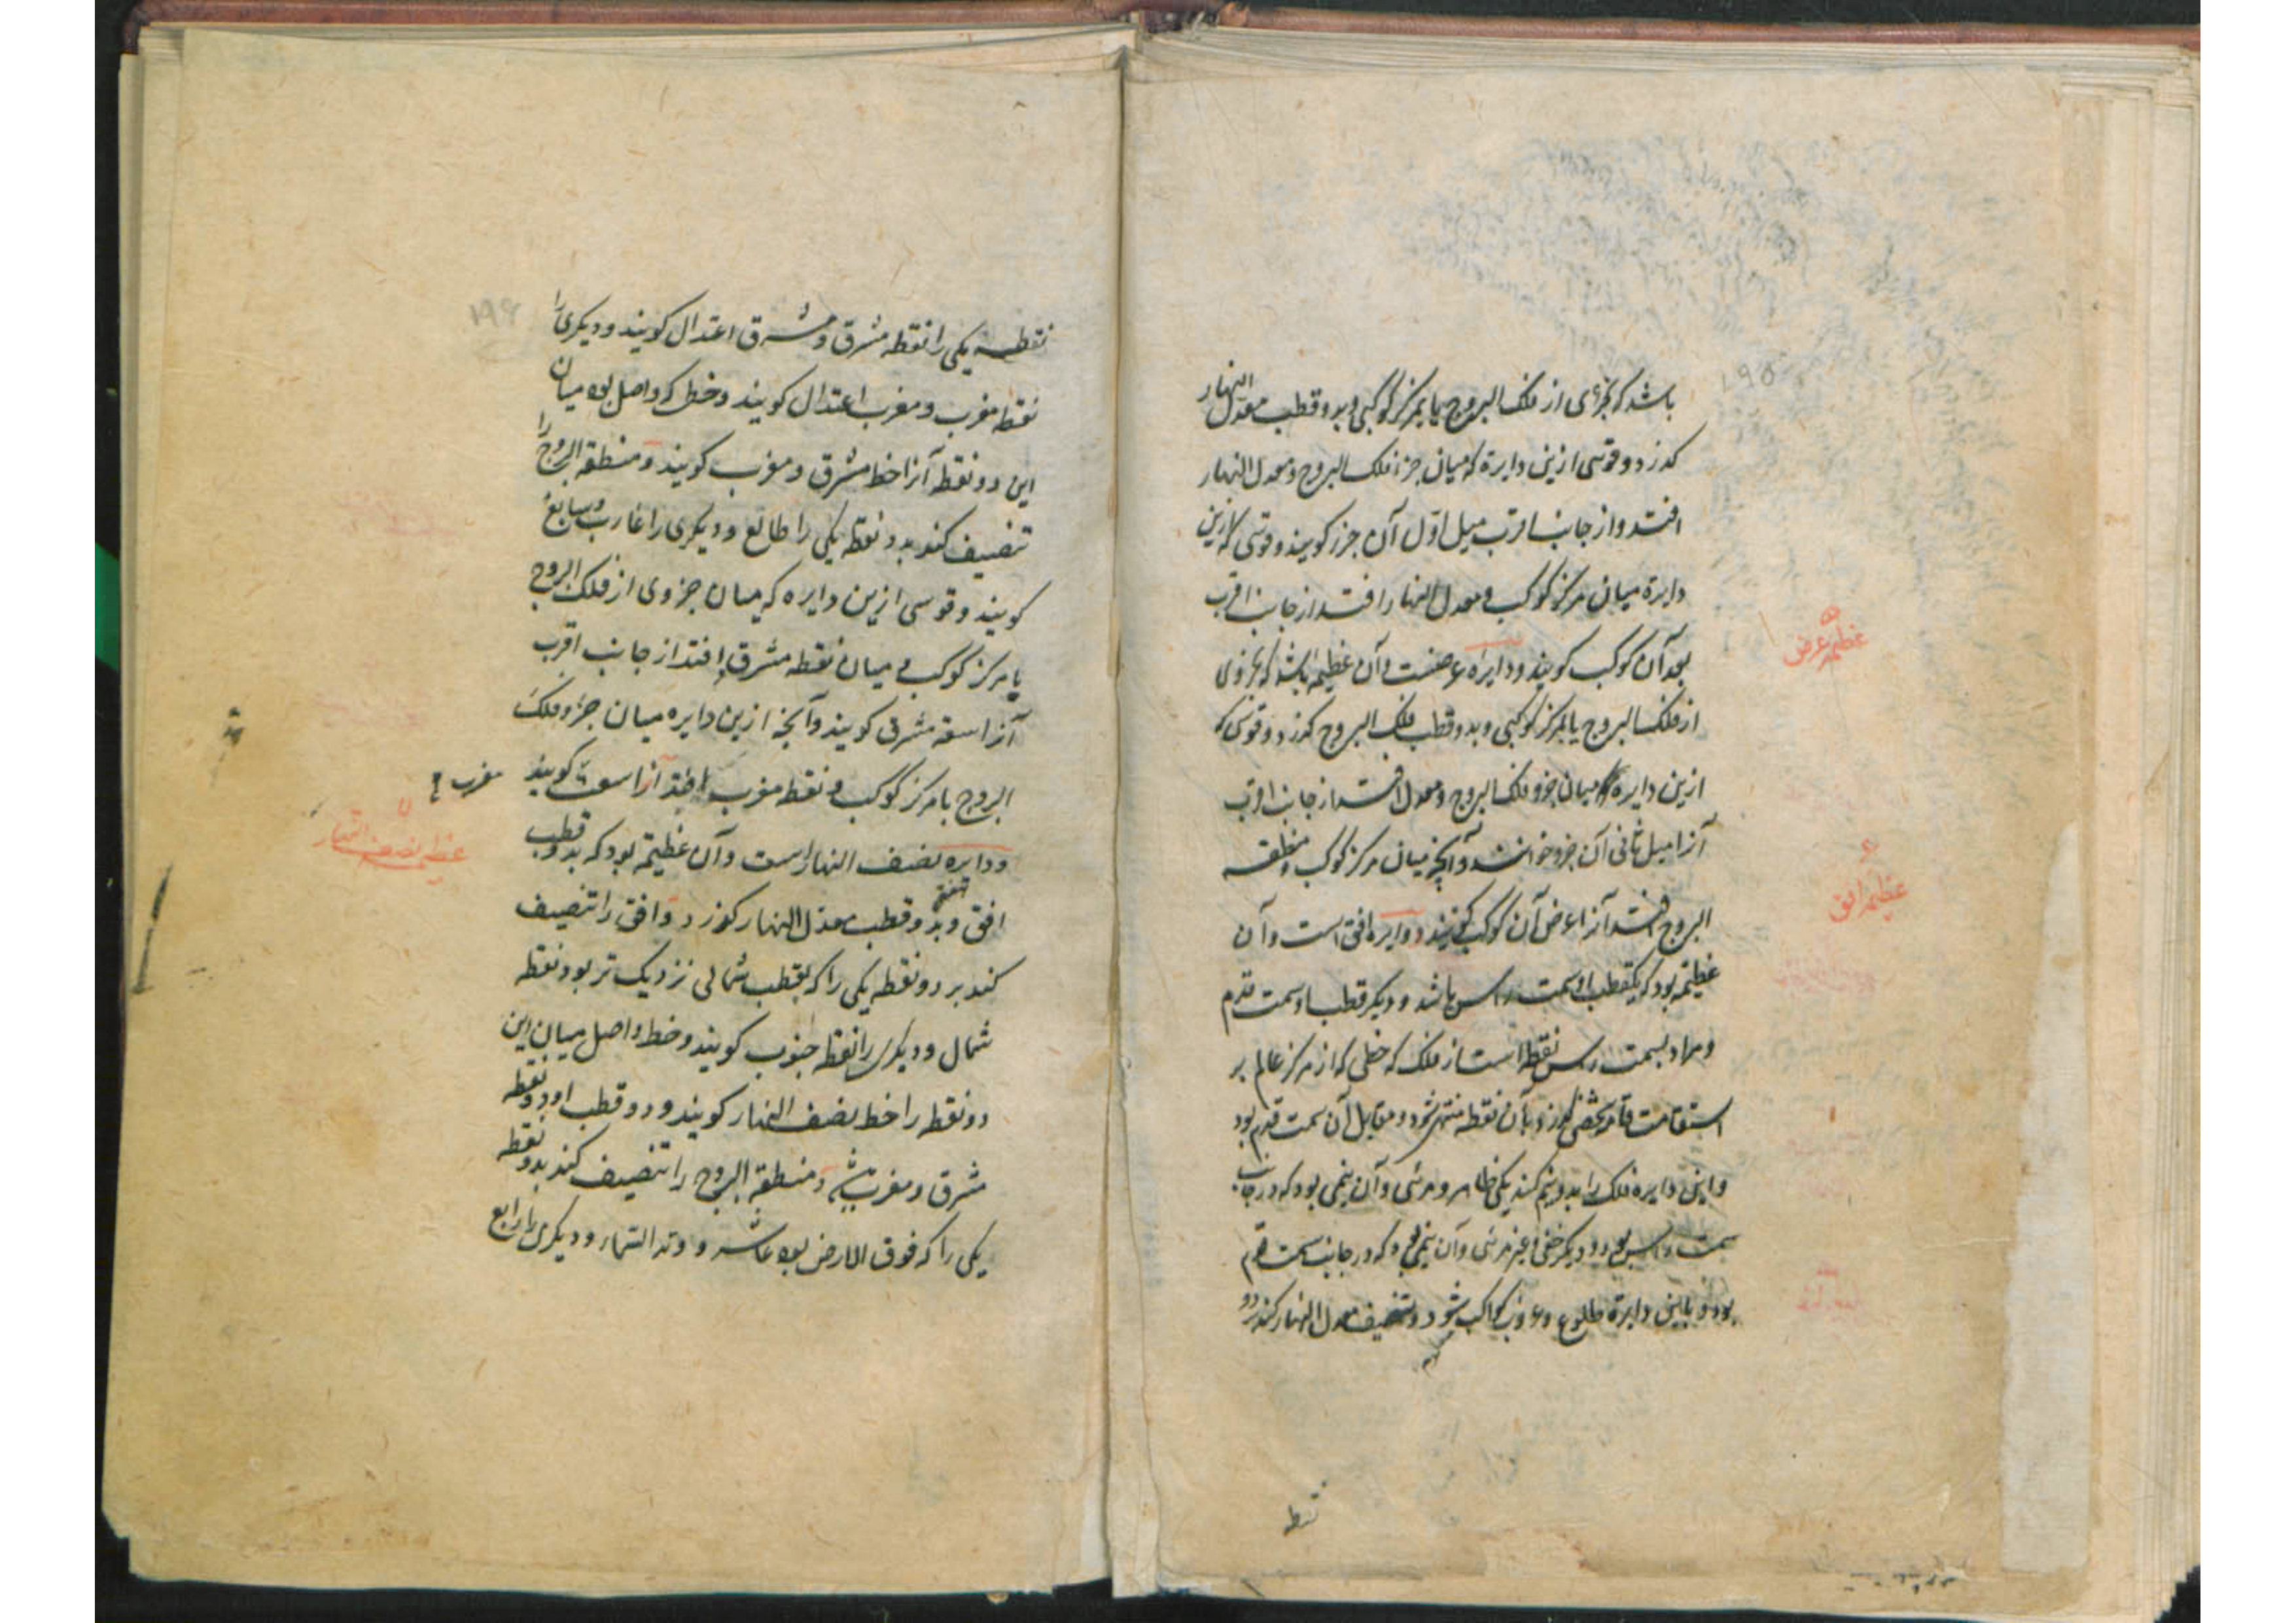 ۱۹۵
باشد که بجزئی از فلک البروج یا بمرکز کوکبی و بدو قطب معدل النهار
کذرد و قوسی ازین دایرة که میان جزء فلک البروج و معدل النهار
افتد و از جانب اقرب میل اوّل آن جزء کویند و قوسی که ازین
دایرة میان مرکز کوکب و معدل النهار افتد از جانب اقرب
بعد آن کوکب کویند و دایره عرضست و آن عظیمه باشد که بجزوی
از فلک البروج یا بمرکز کوکبی و بدو قطب فلک البروج کذرد و قوسی که
ازین دایره میان جزو فلک البروج و معدل افتد از جانب اقرب
آنرا میل ثانی آن جزو خوانند و آنچه میان مرکز کوکب و منطقه
البروج افتد آنرا عرض آن کوکب کویند و دایره افق است و آن
عظیمه بود که یکقطب او سمت راس باشد و دیکر قطب او سمت قدم
و مراد بسمت راس نقطه است از فلک که خطی که از مرکز عالم بر
استقامت قامة شخصی کذرد بآن نقطه منتهی شود و مقابل آن سمت قدم بود
و این دایره فلک را بدو نیم کند یکی ظاهر و مرئی و آن نیمی بود که در جانب
سمت راس بود و دیکر خفی و غیر مرئی و آن نیمی بود که در جانب سمت قدم
بود و باین دایرة طلوع و غروب کواکب شود و تنصیف معدل النهار کند بر دو
نقطه
عظیمه عرض
عظیمه افق
۱۹۶
نقطه یکی را نقطه مشرق و مشرق اعتدال کویند و دیکری را
نقطه مغرب و مغرب اعتدال کویند و خطی که واصل بود میان
این دو نقطه آنرا خط مشرق و مغرب کویند و منطقه البروج را
تنصیف کند بدو نقطه یکی را طالع و دیکری را غارب و سابع
کویند و قوسی ازین دایره که میان جزوی از فلک البروج
یا مرکز کوکب و میان نقطه مشرق افتد از جانب اقرب
آنرا سعة مشرق کویند و آنچه ازین دایره میان جزو فلک
البروج یا مرکز کوکب و نقطه مغرب افتد آنرا سعة کویند
مغرب
و دایره نصف النهار است و آن عظیمه بود که بدو قطب
افق و بدو قطب معدل النهار کذرد و افق را تنصیف
کند بر دو نقطه یکی را که بقطب شمالی نزدیک تر بود نقطه
شمال و دیکری را نقطه جنوب کویند و خط واصل میان این
دو نقطه را خط نصف النهار کویند و دو قطب او دو نقطه
مشرق و مغرب و منطقة البروج را تنصیف کند بدو نقطه
یکی را که فوق الارض بود عاشر و وتد السماء و دیکری را رابع
عظیمه نصف النهار